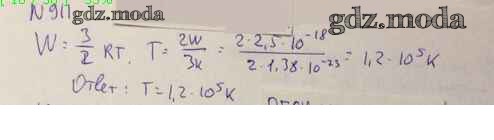 [ 18 / 30 ] 53%
N 911 gdz.moda gdz.moda
W = 3/2 кT. T = 2W/3к = 2·2,5·10^-18 / 2·1,38·10^-23 = 1,2·10^5 K
Ответ: T = 1,2·10^5 K